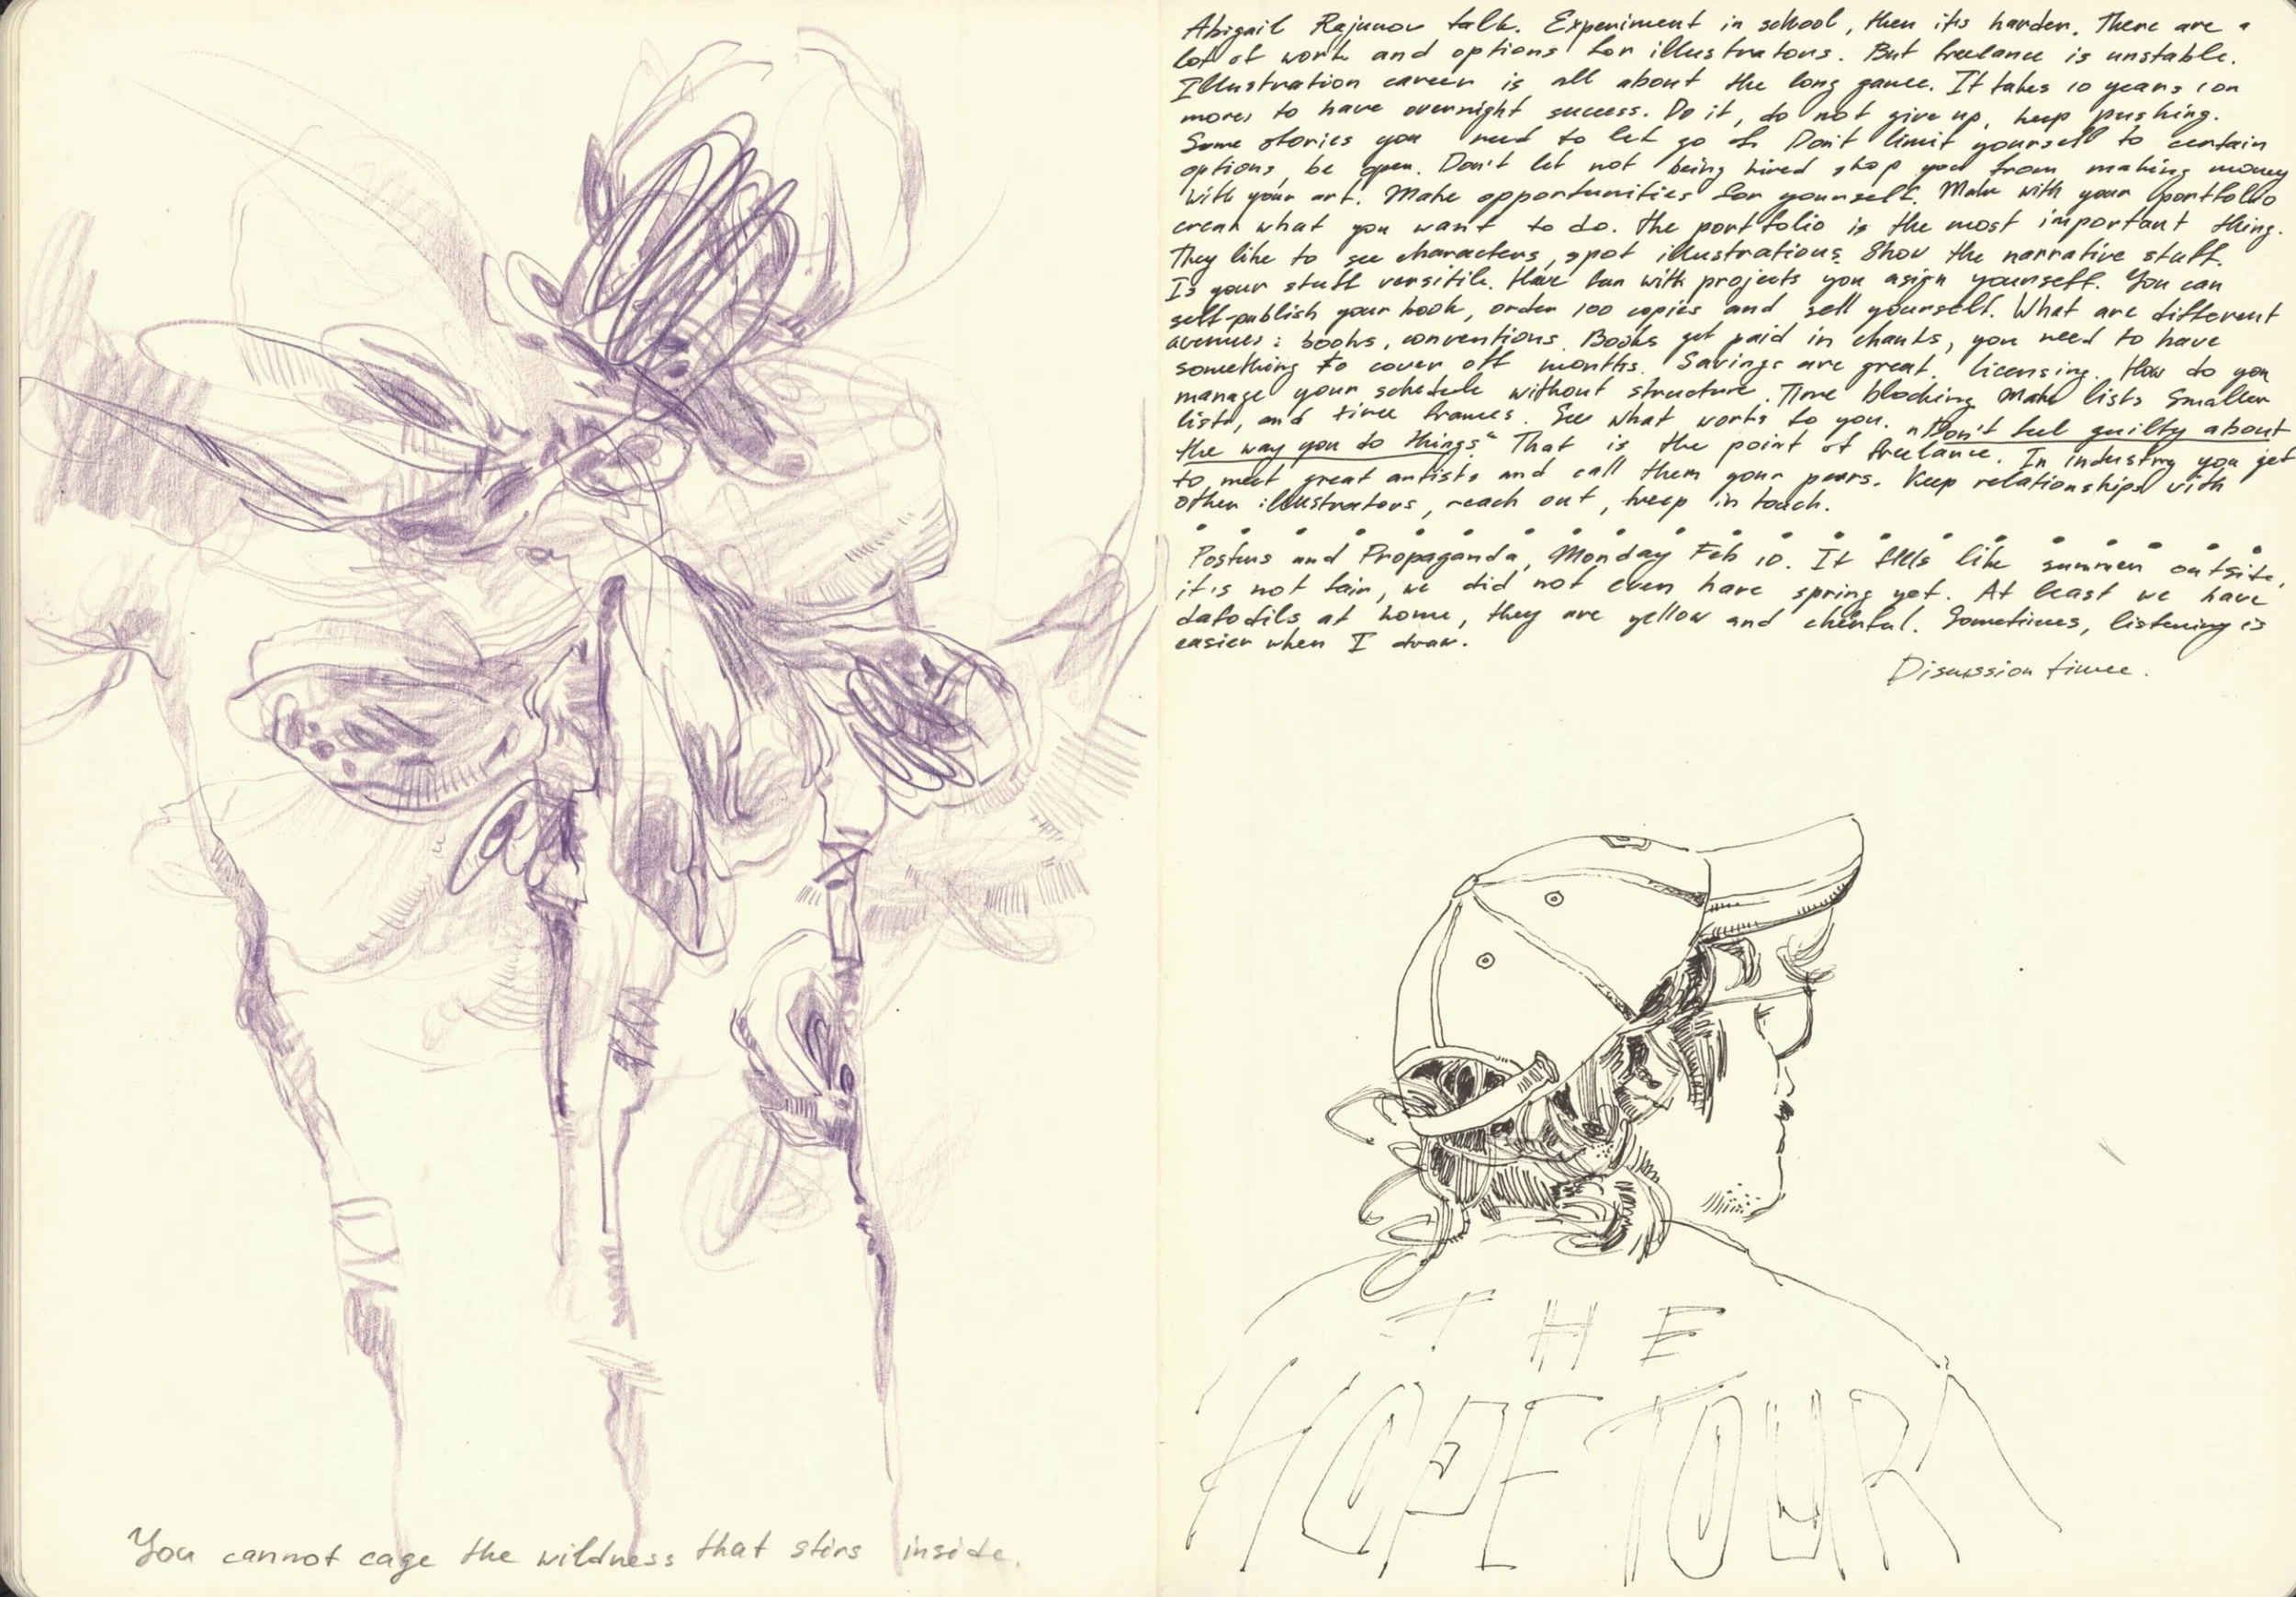 You cannot cage the wildness that stirs inside.
Abigail Rajunov talk. Experiment in school, then it's harder. There are a
lot of work and options for illustrators. But freelance is unstable.
Illustration career is all about the long game. It takes 10 years (or
more) to have overnight success. Do it, do not give up, keep pushing.
Some stories you need to let go of. Don't limit yourself to certain
options, be open. Don't let not being hired stop you from making money
with your art. Make opportunities for yourself. Make with your portfolio
creat what you want to do. The portfolio is the most important thing.
They like to see characters, spot illustrations. Show the narrative stuff.
Is your stuff versitile. Have fun with projects you asign yourself. You can
self-publish your book, order 100 copies and sell yourself. What are different
avenues: books, conventions. Books get paid in chanks, you need to have
something to cover off months. Savings are great. Licensing. How do you
manage your schedule without structure. Time blocking. Make lists. Smaller
lists, and time frames. See what works to you. "Don't feel guilty about
the way you do things" That is the point of freelance. In industry you get
to meet great artists and call them your peers. Keep relationships with
other illustrators, reach out, keep in touch.
Posters and Propaganda, Monday Feb 10. It fells like summer outside,
it's not fair, we did not even have spring yet. At least we have
dafodils at home, they are yellow and cheerful. Sometimes, listening is
easier when I draw.
Discussion time.
THE
HOPE TOUR